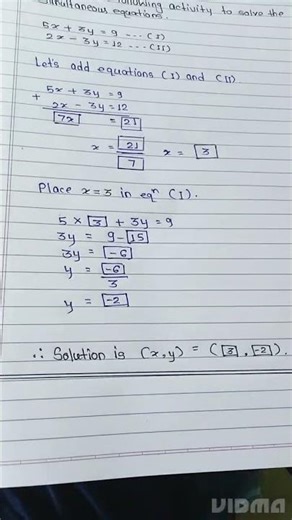 following activity to solve the
simultaneous equations.
5x + 3y = 9 --- (I)
2x - 3y = 12 --- (II)
Let's add equations (I) and (II)
5x + 3y = 9
+ 2x - 3y = 12
7x = 21
x = 21/7 x = 3
Place x = 3 in eqⁿ (I).
5 × 3 + 3y = 9
3y = 9 - 15
3y = -6
y = -6/3
y = -2
∴ Solution is (x,y) = (3, -2).
VIDMA